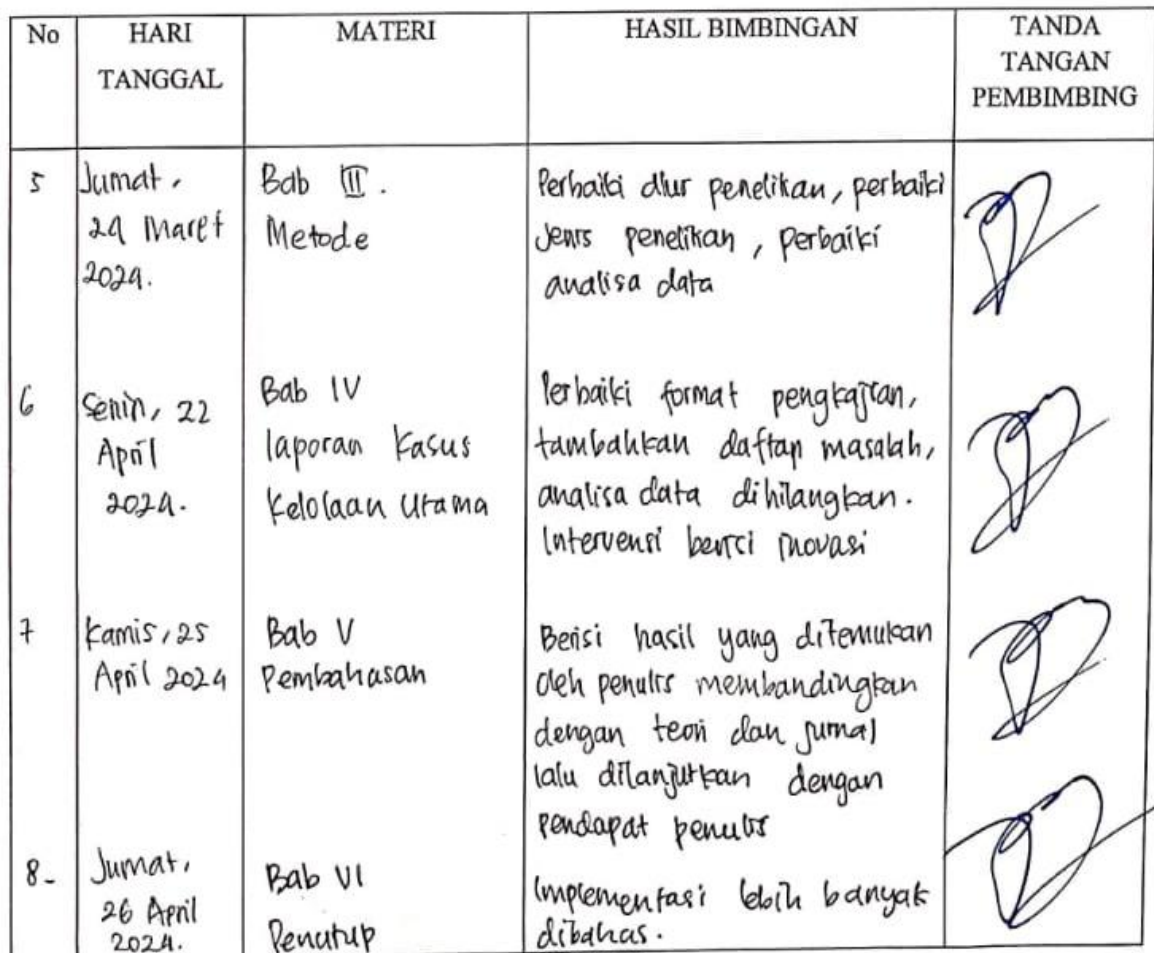 No
HARI
TANGGAL
MATERI
HASIL BIMBINGAN
TANDA
TANGAN
PEMBIMBING
5
Jumat,
29 Maret
2024.
Bab III.
Metode
Perbaiki alur penelitian, perbaiki
Jenis penelitian, perbaiki
analisa data
6
Senin, 22
April
2024.
Bab IV
laporan kasus
Kelolaan Utama
Perbaiki format pengkajian,
tambahkan daftar masalah,
analisa data dihilangkan.
Intervensi berisi inovasi
7
Kamis, 25
April 2024
Bab V
Pembahasan
Berisi hasil yang ditemukan
oleh penulis membandingkan
dengan teori dan jurnal
lalu dilanjutkan dengan
pendapat penulis
8-
Jumat,
26 April
2024.
Bab VI
Penutup
Implementasi lebih banyak
dibahas.